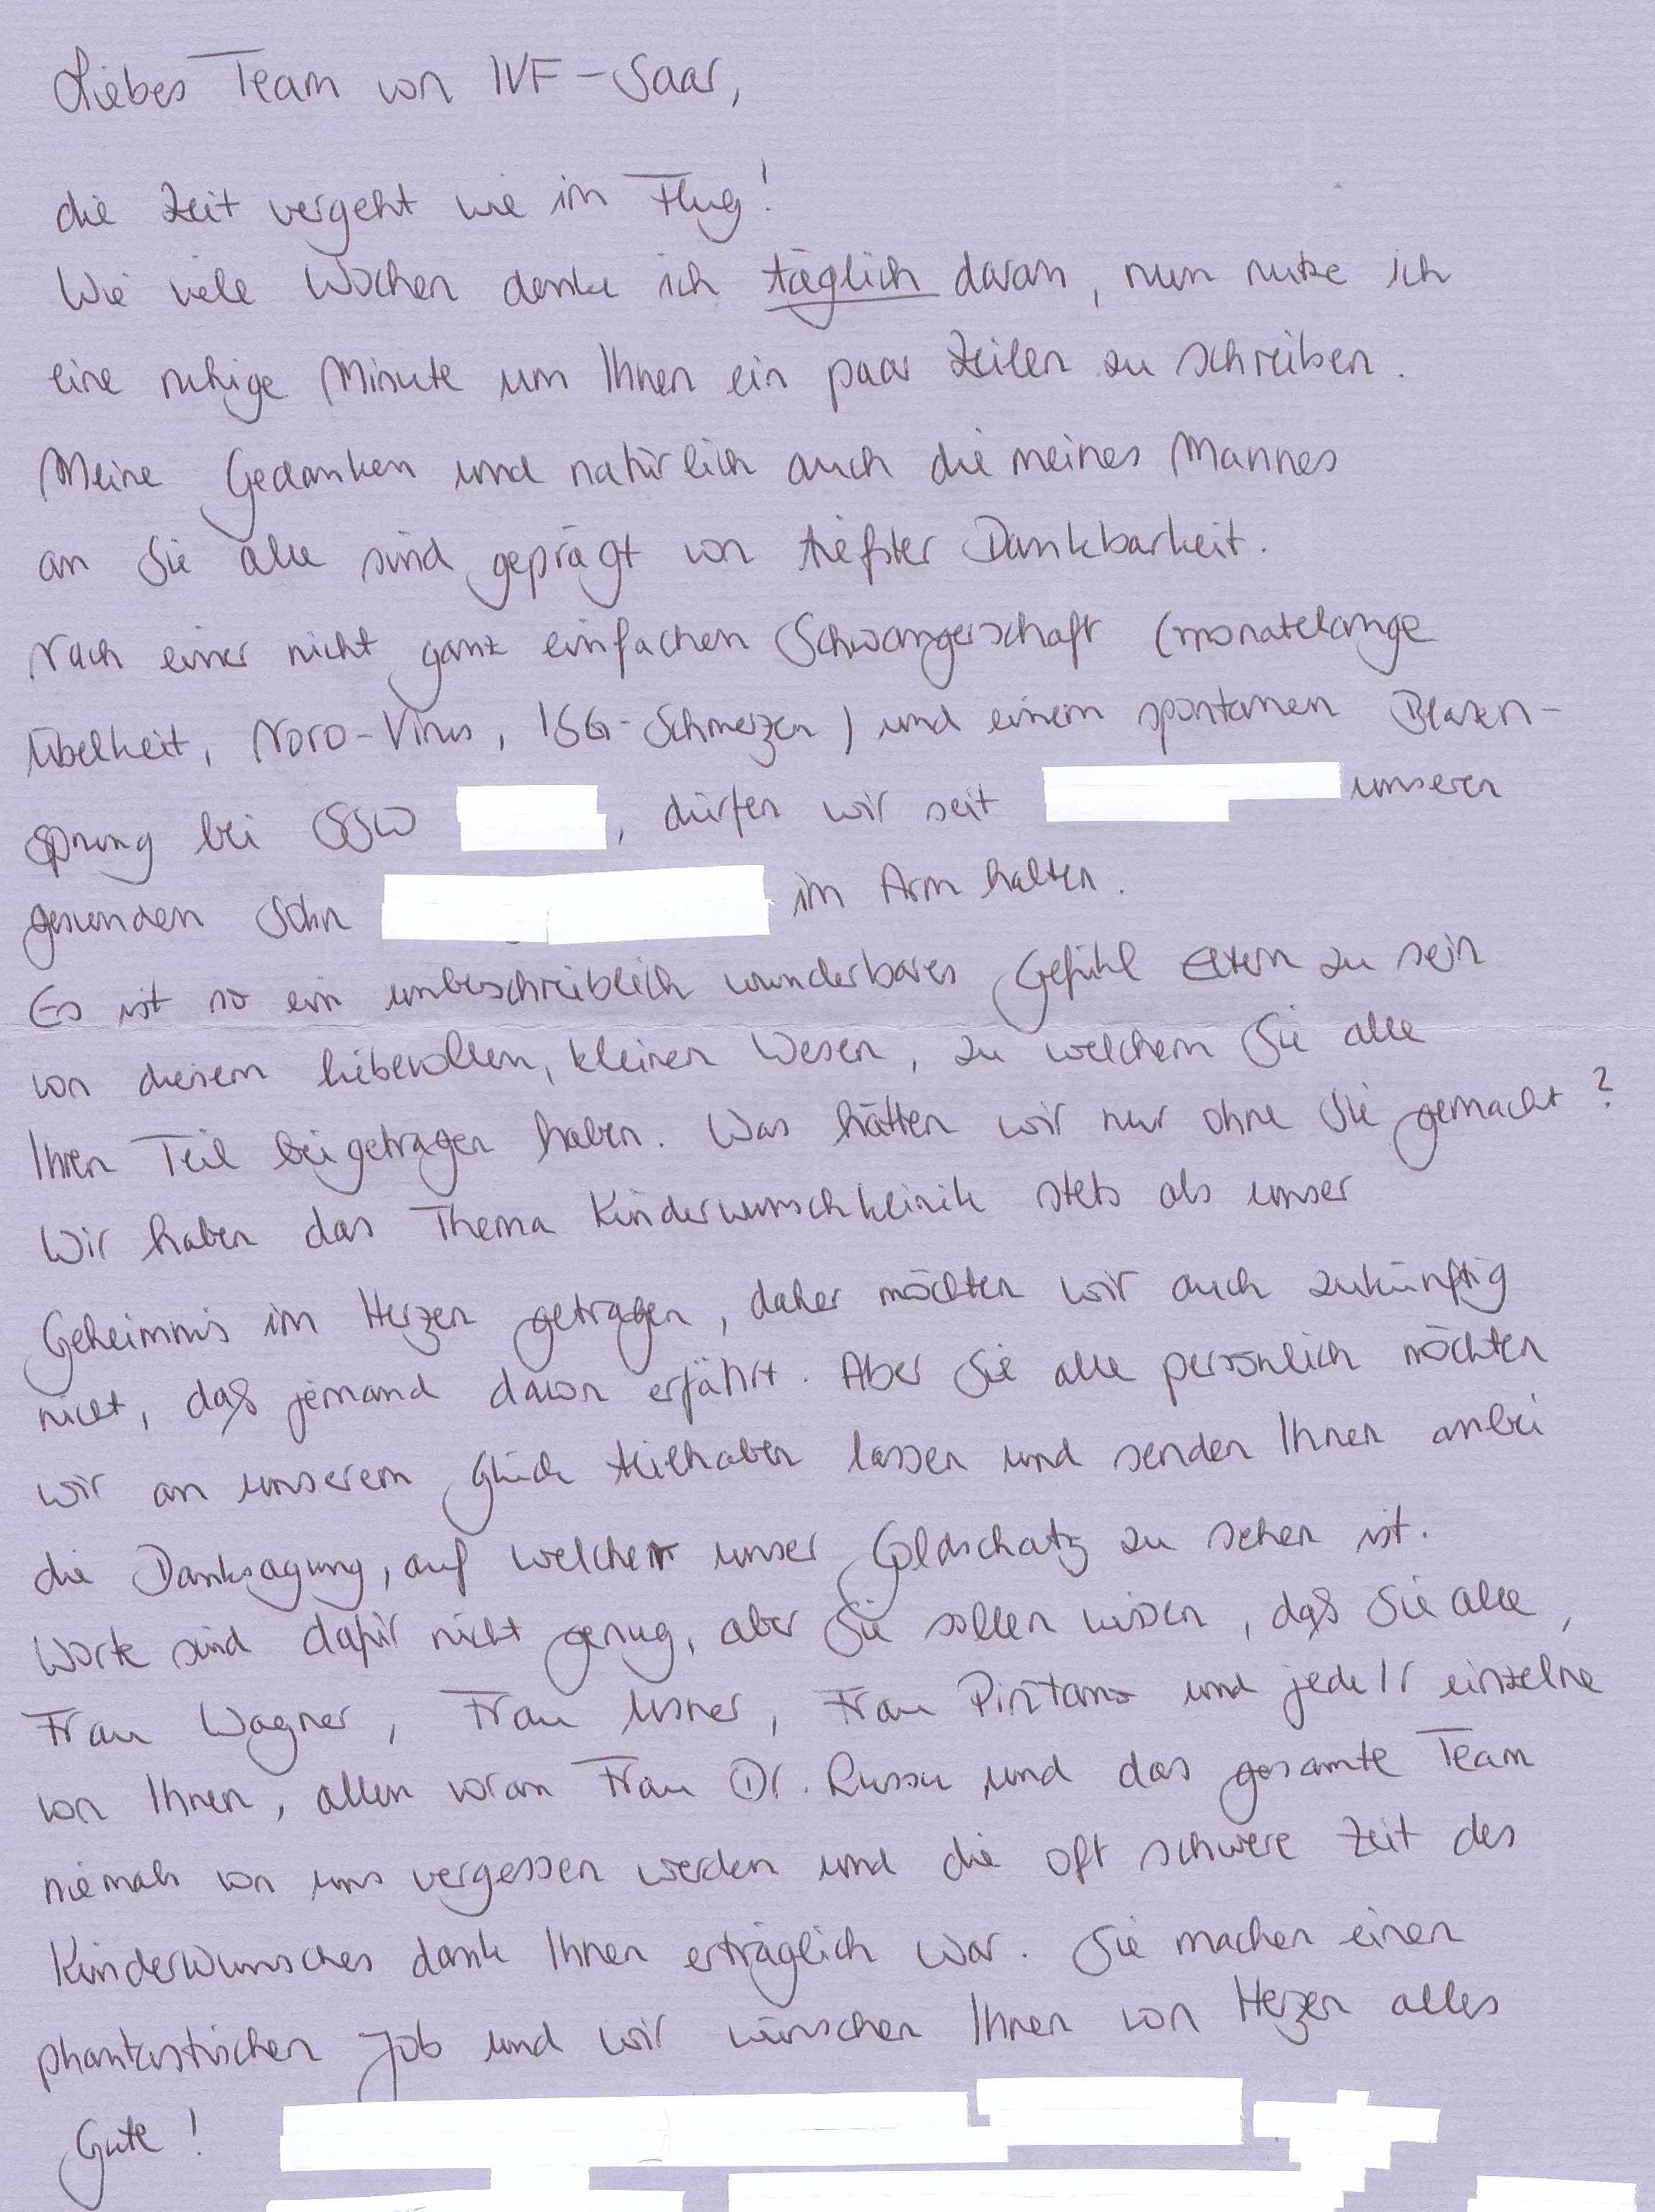 Liebes Team von IVF-Saar,
die Zeit vergeht wie im Flug!
Wie viele Wochen denke ich täglich daran, nun nutze ich
eine ruhige Minute um Ihnen ein paar Zeilen zu schreiben.
Meine Gedanken und natürlich auch die meines Mannes
an Sie alle sind geprägt von tiefster Dankbarkeit.
Nach einer nicht ganz einfachen Schwangerschaft (monatelange
Übelkeit, Noro-Virus, ISG-Schmerzen) und einem spontanen Blasen-
sprung bei SSW , dürfen wir seit unseren
gesunden Sohn im Arm halten.
Es ist so ein unbeschreiblich wunderbares Gefühl Eltern zu sein
von diesem liebevollen, kleinen Wesen, zu welchem Sie alle
Ihren Teil beigetragen haben. Was hätten wir nur ohne Sie gemacht?
Wir haben das Thema Kinderwunschklinik stets als unser
Geheimnis im Herzen getragen, daher möchten wir auch zukünftig
nicht, daß jemand davon erfährt. Aber Sie alle persönlich möchten
wir an unserem Glück teilhaben lassen und senden Ihnen anbei
die Danksagung, auf welcher unser Goldschatz zu sehen ist.
Worte sind dafür nicht genug, aber Sie sollen wissen, daß Sie alle,
Frau Wagner, Frau , Frau und jede/r einzelne
von Ihnen, allen voran Frau Dr. Russu und das gesamte Team
niemals von uns vergessen werden und die oft schwere Zeit des
Kinderwunsches dank Ihnen erträglich war. Sie machen einen
phantastischen Job und wir wünschen Ihnen von Herzen alles
Gute!